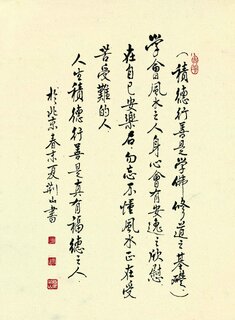 (積德行善是學佛修道之基礎)
學會風水之人身心會有安逸之欣慰
在自己安樂后勿忘不懂風水正在受
苦受難的人
人生積德行善是真有福德之人
於北京春末夏荆山書